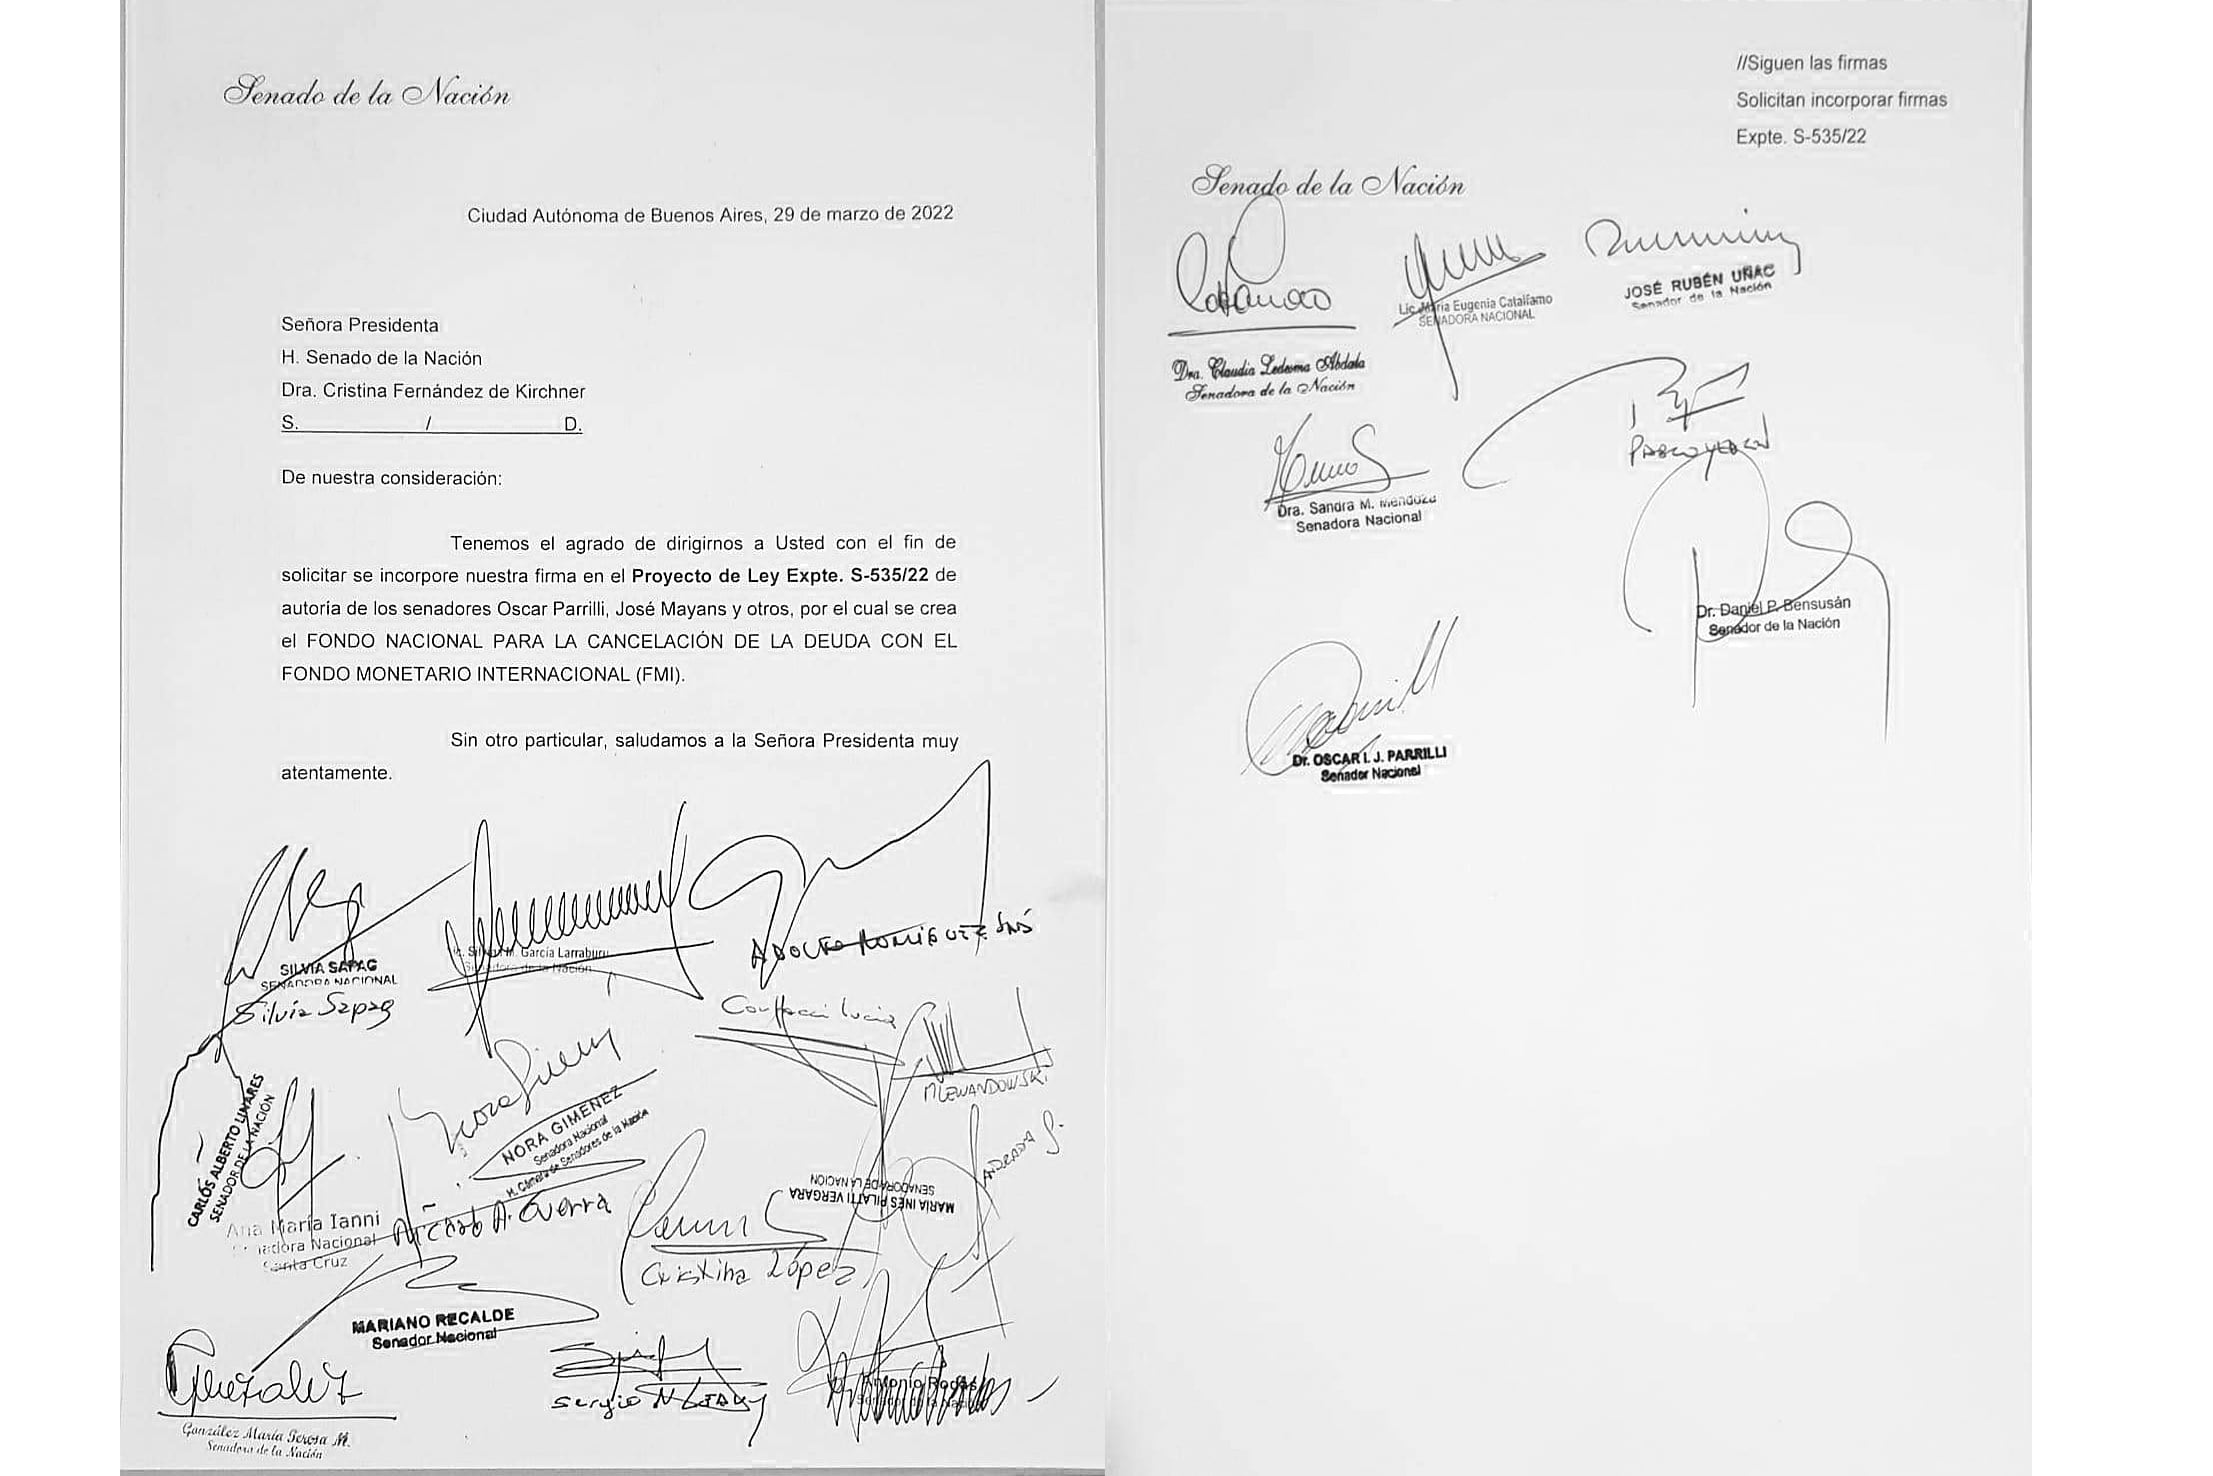 Senado de la Nación
Ciudad Autónoma de Buenos Aires, 29 de marzo de 2022
Señora Presidenta
H. Senado de la Nación
Dra. Cristina Fernández de Kirchner
S. / D.
De nuestra consideración:
Tenemos el agrado de dirigirnos a Usted con el fin de
solicitar se incorpore nuestra firma en el Proyecto de Ley Expte. S-535/22 de
autoría de los senadores Oscar Parrilli, José Mayans y otros, por el cual se crea
el FONDO NACIONAL PARA LA CANCELACIÓN DE LA DEUDA CON EL
FONDO MONETARIO INTERNACIONAL (FMI).
Sin otro particular, saludamos a la Señora Presidenta muy
atentamente.
SILVIA SAPAG
SENADORA NACIONAL
Silvia Sapag
García Larraburu
Senadora de la Nación
ADOLFO RODRIGUEZ SAÁ
Lucia
MLEWANDOWSKI
CARLOS ALBERTO LINARES
SENADOR DE LA NACIÓN
NORA GIMENEZ
Senadora Nacional
H. Cámara de Senadores de la Nación
ANDRADA G.
MARIA INES PILATTI VERGARA
SENADORA DE LA NACION
Ana María Ianni
Senadora Nacional
Santa Cruz
Ricardo A. Guerra
Cristina López
MARIANO RECALDE
Senador Nacional
Gonzalez
González María Teresa M.
Senadora de la Nación
Sergio N. Leavy
Antonio Rodas
//Siguen las firmas
Solicitan incorporar firmas
Expte. S-535/22
Senado de la Nación
Dra. Claudia Ledesma Abdala
Senadora de la Nación
Lic. María Eugenia Catalfamo
SENADORA NACIONAL
JOSÉ RUBÉN UÑAC
Senador de la Nación
Dra. Sandra M. Mendoza
Senadora Nacional
PABLO YEDLIN
Dr. Daniel P. Bensusán
Senador de la Nación
Dr. OSCAR I. J. PARRILLI
Senador Nacional